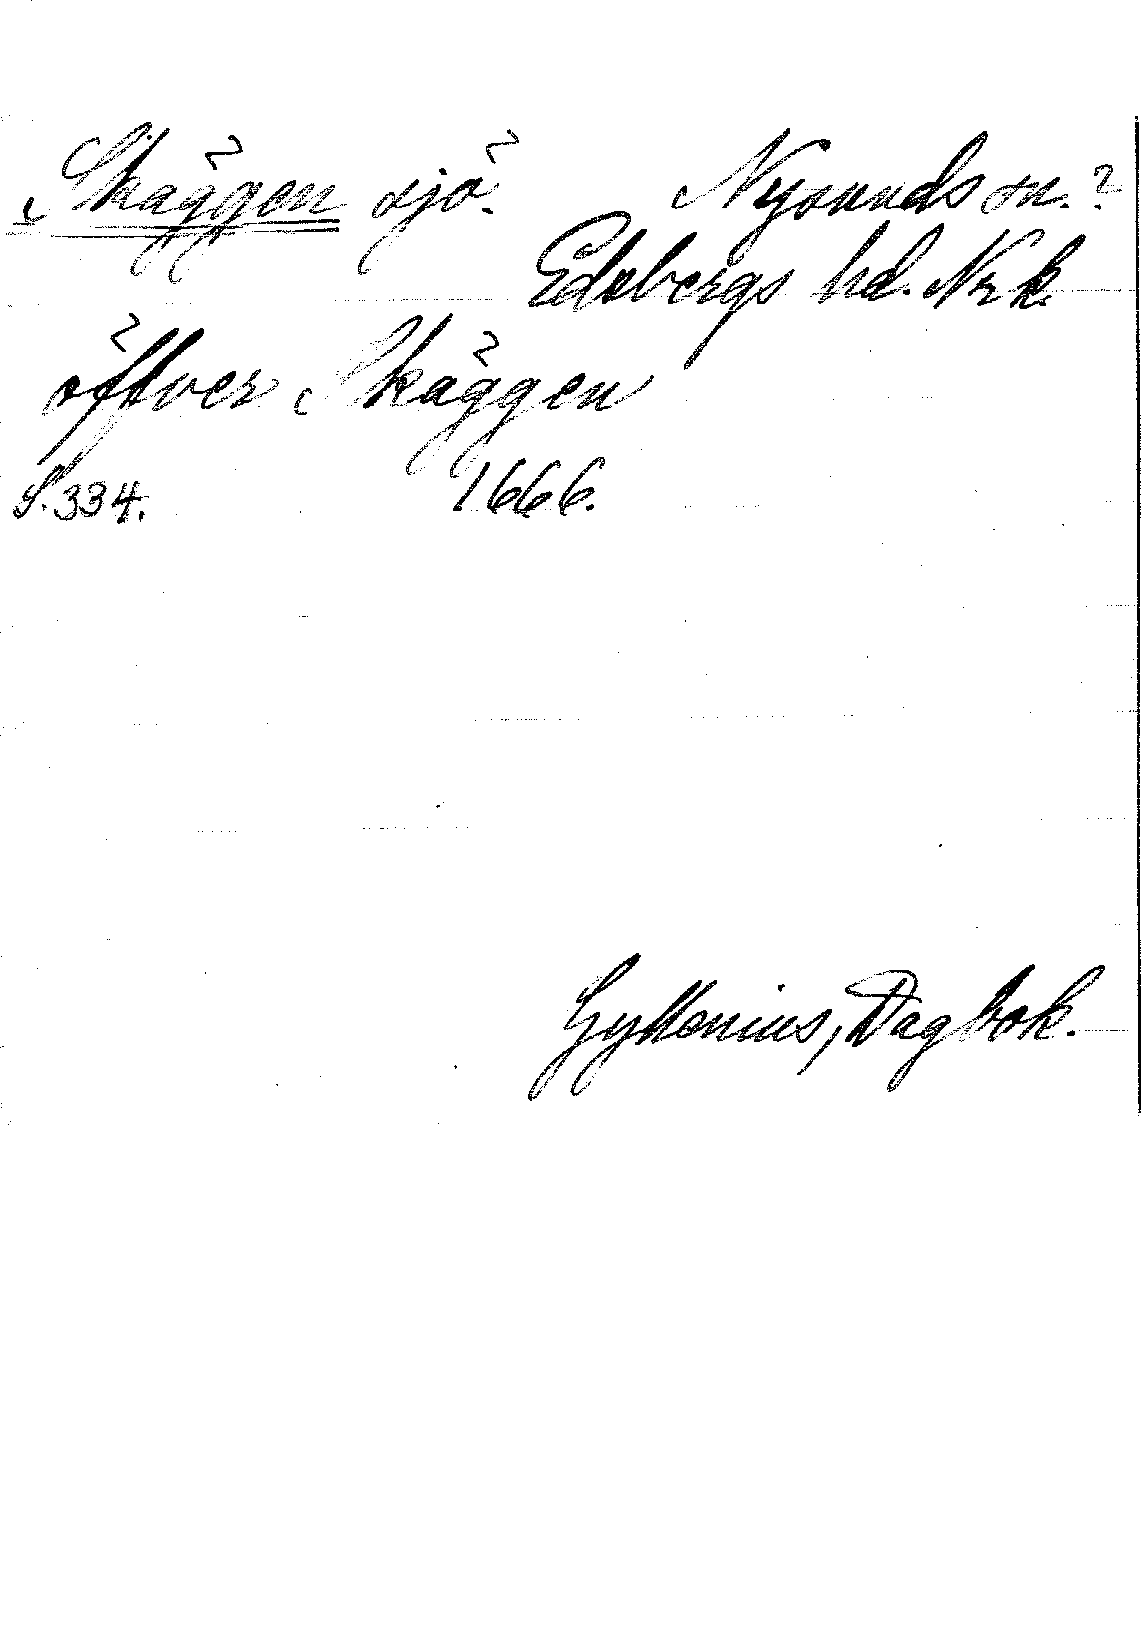 Skäggen sjö. Nysunds sn.?
Edsbergs hd. Nrk.
öffver Skäggen
S. 334. 1666.
Gyllenius, Dagbok.